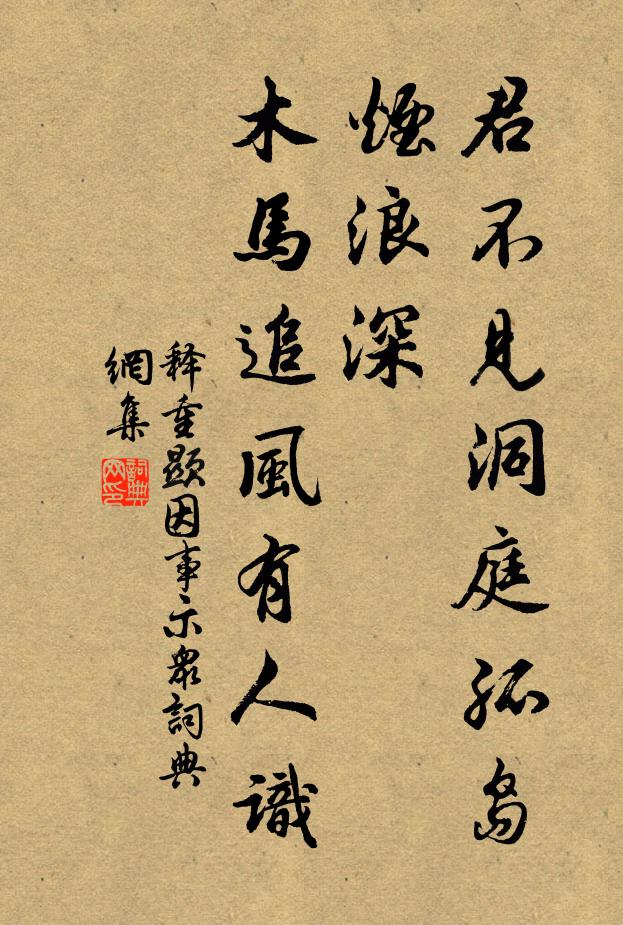 君不見洞庭孤島
煙浪深
木馬追風有人識
释重顯因事示衆詞典
網集
詞典網印